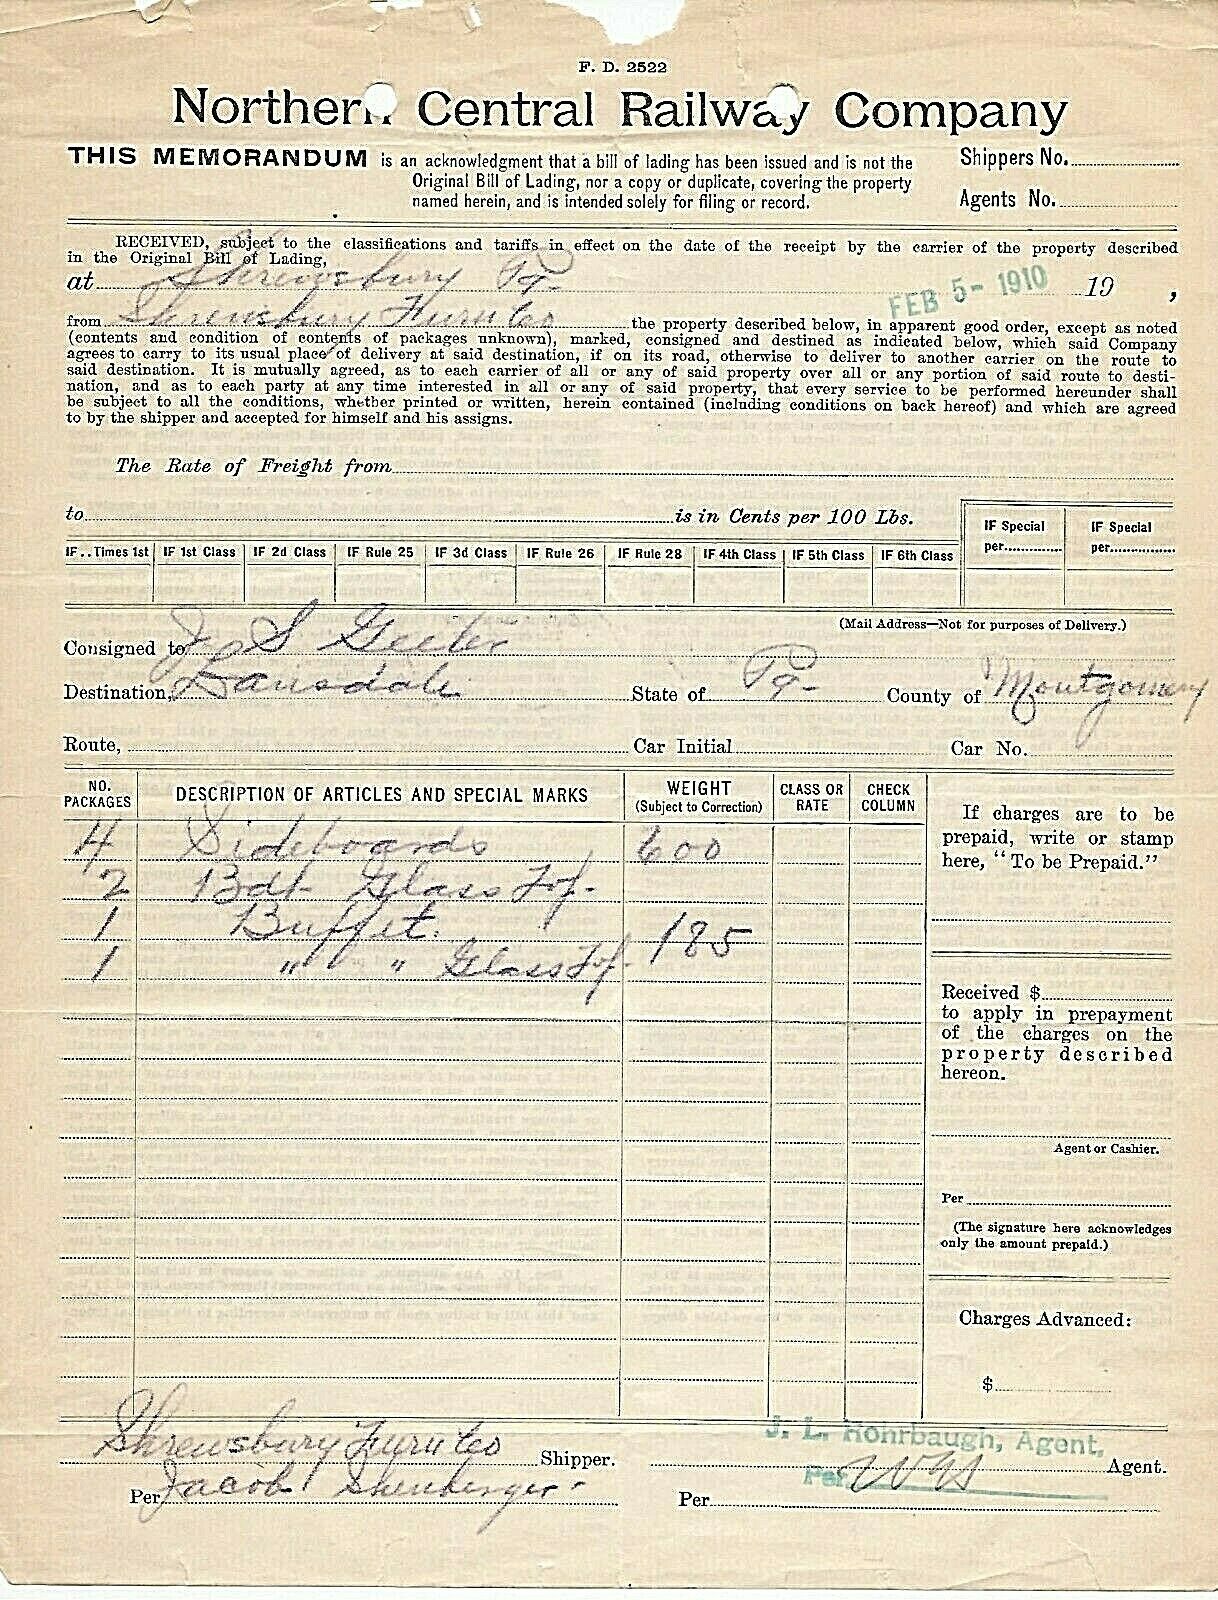 F. D. 2522
Northern Central Railway Company
THIS MEMORANDUM is an acknowledgment that a bill of lading has been issued and is not the
Original Bill of Lading, nor a copy or duplicate, covering the property
named herein, and is intended solely for filing or record.
Shippers No.
Agents No.
RECEIVED, subject to the classifications and tariffs in effect on the date of the receipt by the carrier of the property described
in the Original Bill of Lading,
at Shrewsbury Pa. FEB 5- 1910 19 ,
from Shrewsbury Furn Co the property described below, in apparent good order, except as noted
(contents and condition of contents of packages unknown), marked, consigned and destined as indicated below, which said Company
agrees to carry to its usual place of delivery at said destination, if on its road, otherwise to deliver to another carrier on the route to
said destination. It is mutually agreed, as to each carrier of all or any of said property over all or any portion of said route to desti-
nation, and as to each party at any time interested in all or any of said property, that every service to be performed hereunder shall
be subject to all the conditions, whether printed or written, herein contained (including conditions on back hereof) and which are agreed
to by the shipper and accepted for himself and his assigns.
The Rate of Freight from
to is in Cents per 100 Lbs.
IF Special per
IF Special per
IF..Times 1st IF 1st Class IF 2d Class IF Rule 25 IF 3d Class IF Rule 26 IF Rule 28 IF 4th Class IF 5th Class IF 6th Class
(Mail Address—Not for purposes of Delivery.)
Consigned to J S
Destination, Lansdale State of Pa- County of Montgomery
Route, Car Initial Car No.
NO. PACKAGES DESCRIPTION OF ARTICLES AND SPECIAL MARKS WEIGHT (Subject to Correction) CLASS OR RATE CHECK COLUMN
4 Sideboards 600
2 Bdl- Glass Top-
1 Buffet. 185
1 " " Glass Top-
If charges are to be
prepaid, write or stamp
here, "To be Prepaid."
Received $
to apply in prepayment
of the charges on the
property described
hereon.
Agent or Cashier.
Per
(The signature here acknowledges
only the amount prepaid.)
Charges Advanced:
$
Shrewsbury Furn Co Shipper.
Per Jacob
J. L. Rohrbaugh, Agent,
Per Agent.
Per